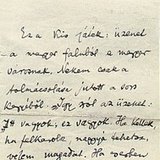 Ez a Kis játék: üzenet
a magyar faluból a magyar
városnak. Nekem csak a
tolmácsolás jutott a vers
Így szól az üzenet:
Itt vagyok, ez vagyok. Ha kellek
ha felkarolsz, naggyá tehetsz
velem magadat. Ha